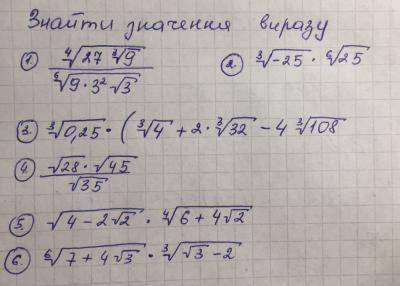 Знайти значення виразу
1. \frac{\sqrt[4]{27 \sqrt[3]{9}}}{\sqrt[6]{9 \cdot 3^2 \sqrt{3}}} 2. \sqrt[3]{-25} \cdot \sqrt[6]{25}
3. \sqrt[3]{0,25} \cdot ( \sqrt[3]{4} + 2 \cdot \sqrt[3]{32} - 4 \sqrt[3]{108}
4. \frac{\sqrt{28} \cdot \sqrt{45}}{\sqrt{35}}
5. \sqrt{4 - 2\sqrt{2}} \cdot \sqrt[4]{6 + 4\sqrt{2}}
6. \sqrt[6]{7 + 4\sqrt{3}} \cdot \sqrt[3]{\sqrt{3} - 2}